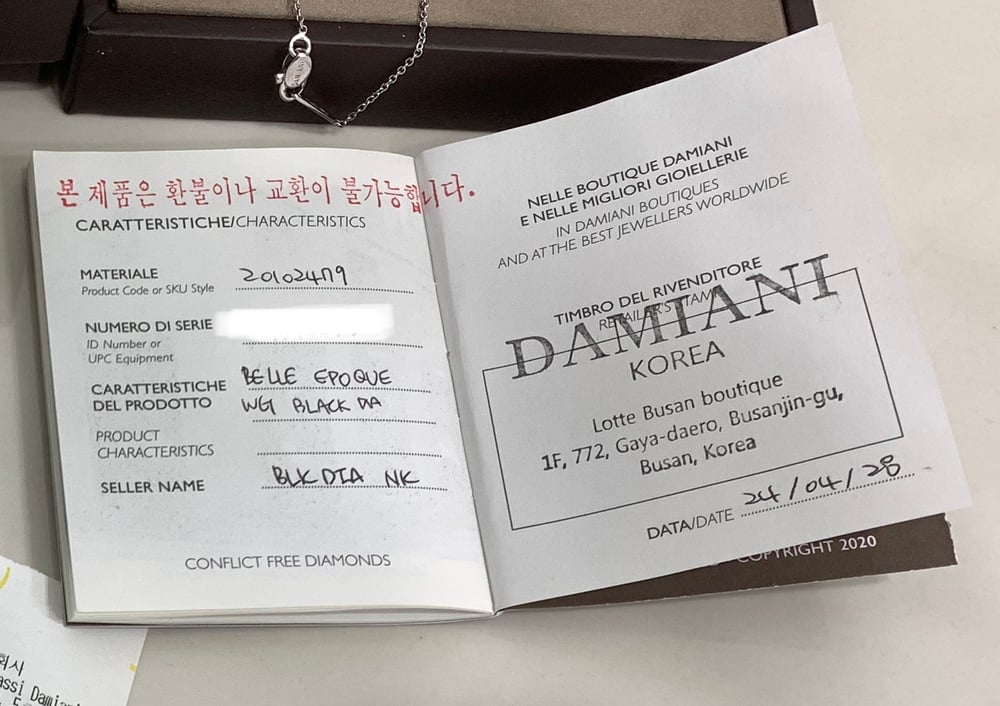 본 제품은 환불이나 교환이 불가능합니다.
CARATTERISTICHE/CHARACTERISTICS
MATERIALE 20102479
Product Code or SKU Style
NUMERO DI SERIE
ID Number or
UPC Equipment
CARATTERISTICHE BELLE EPOQUE
DEL PRODOTTO WG BLACK DIA
PRODUCT
CHARACTERISTICS
SELLER NAME BLK DIA NK
CONFLICT FREE DIAMONDS
NELLE BOUTIQUE DAMIANI
E NELLE MIGLIORI GIOIELLERIE
IN DAMIANI BOUTIQUES
AND AT THE BEST JEWELLERS WORLDWIDE
TIMBRO DEL RIVENDITORE
RETAILER'S STAMP
DAMIANI
KOREA
Lotte Busan boutique
1F, 772, Gaya-daero, Busanjin-gu,
Busan, Korea
DATA/DATE 24/04/28
COPYRIGHT 2020
회사
assi Damiani